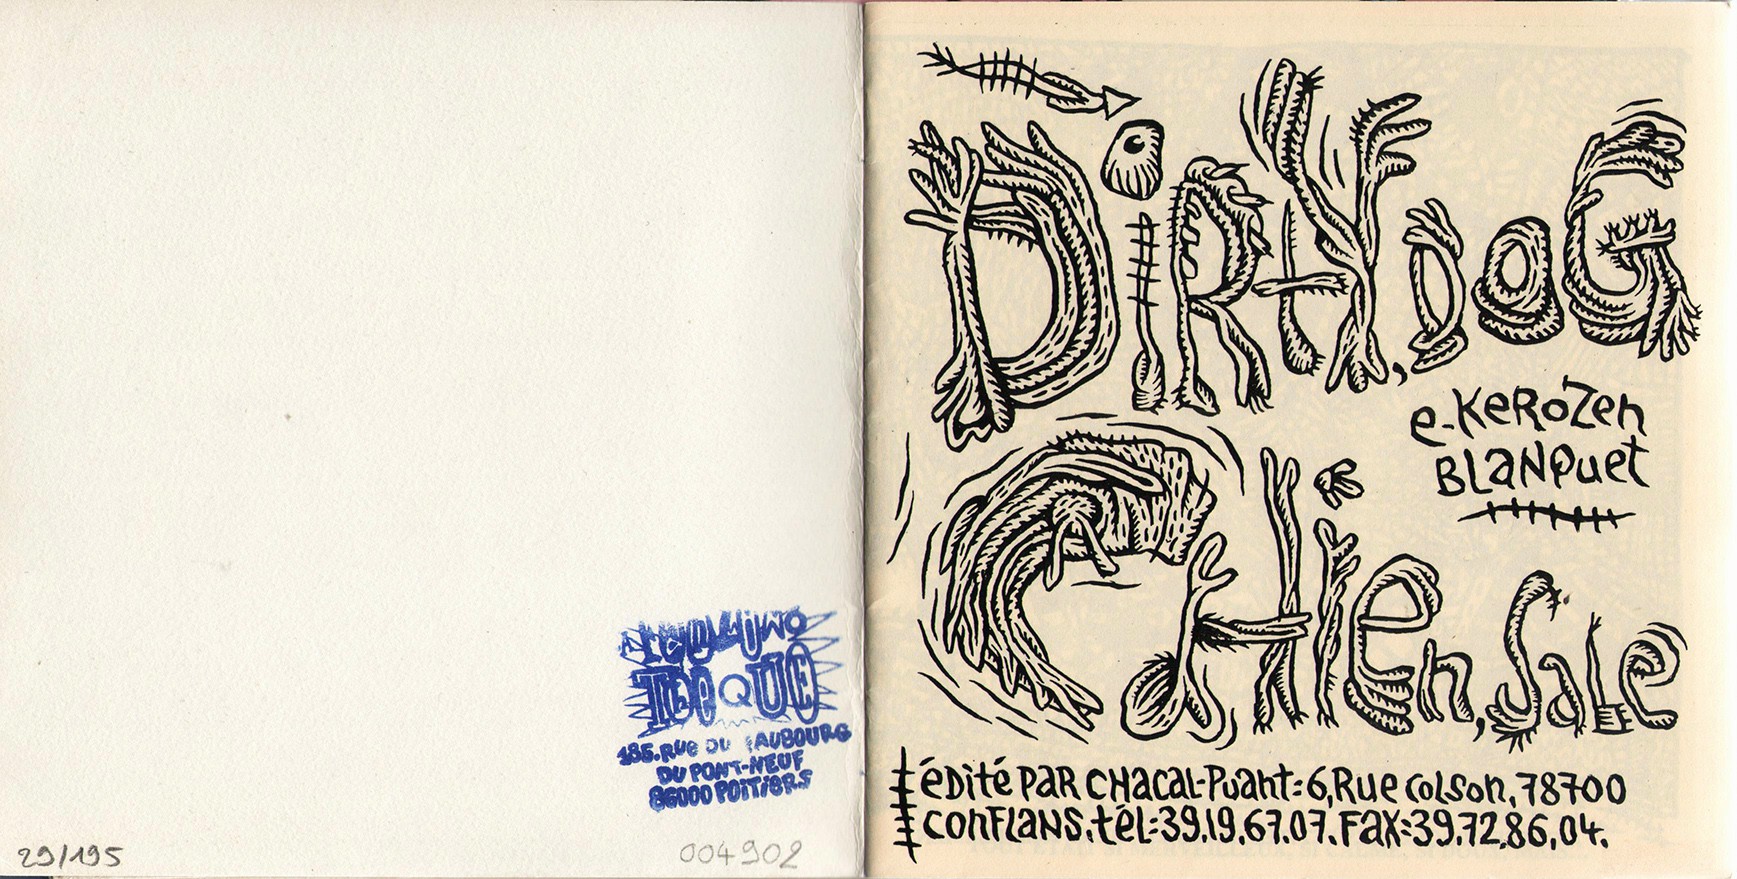 FANZINO
THèQUE
185.RUE DU FAUBOURG
DU PONT-NEUF
86000 POITIERS
29/195
004902
DiRtY, DoG
e-KeRoZen
BLaNQuet
CHien, SaLe
éDité PaR CHaCaL-Puant:6,Rue colson,78700
conFLANS.téL:39.19.67.07.FaX:39.72.86.04.